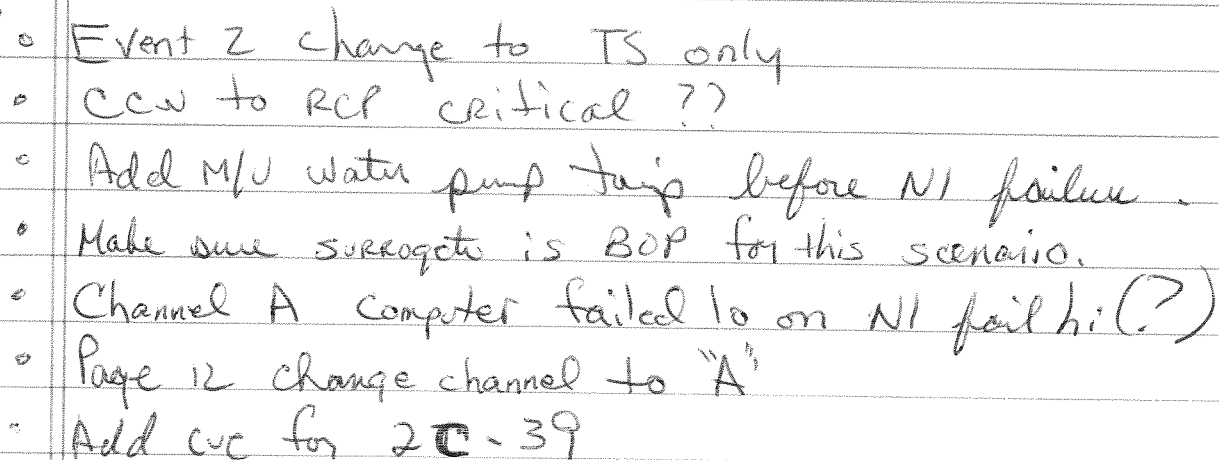 Event 2 change to TS only
CCW to RCP critical ??
Add M/U water pump trip before NI failure.
Make sure surrogate is BOP for this scenario.
Channel A computer failed lo on NI fail hi (?)
Page 12 change channel to "A"
Add CVC for 2C-39